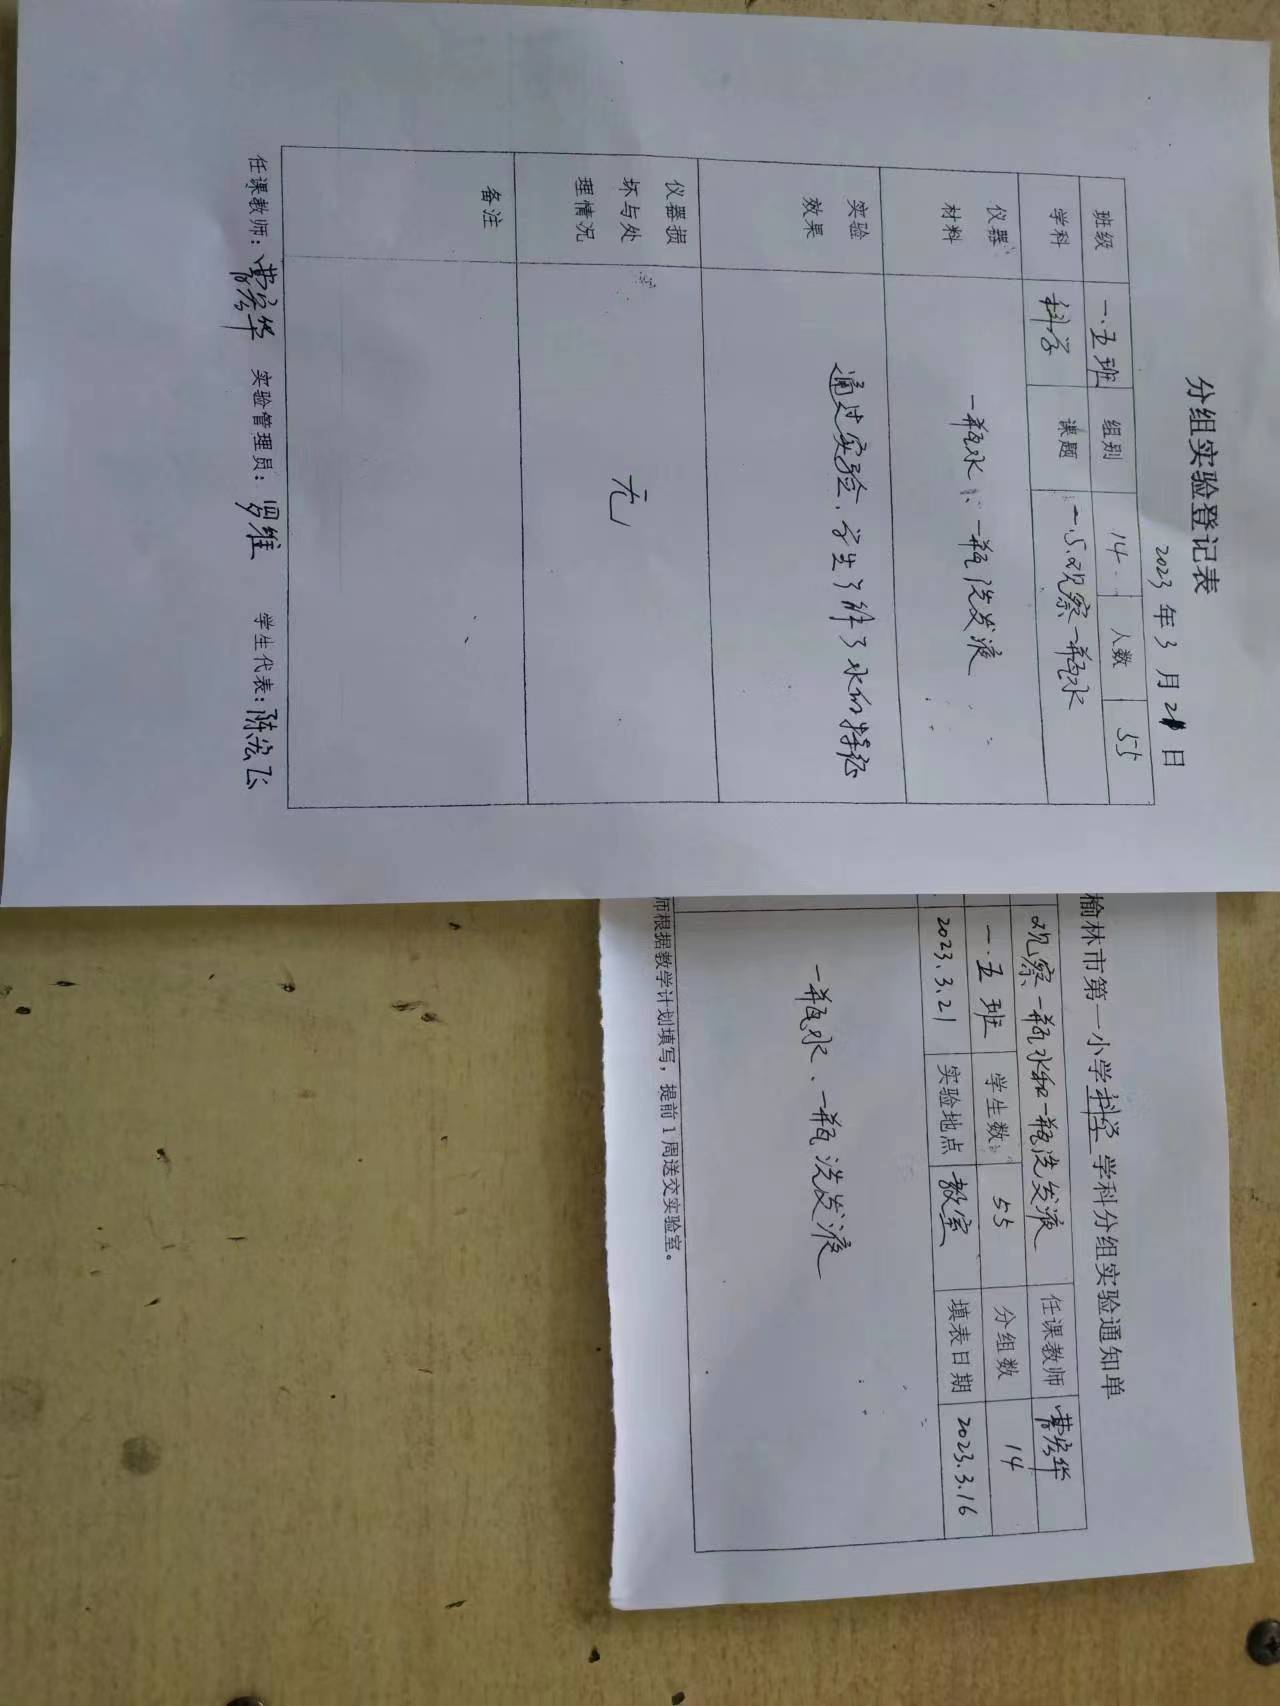 分组实验登记表
2023 年 3 月 21 日
班级 一.五班 组别 14. 人数 55
学科 科学 课题 一.5.观察一瓶水
仪器材料 一瓶水、一瓶洗发液
实验效果 通过实验,学生了解了水的特征
仪器损坏与处理情况 无
备注
任课教师: 曹宏华 实验管理员: 罗维 学生代表: 陈宏飞
榆林市第一小学科学学科分组实验通知单
观察一瓶水和一瓶洗发液 任课教师 曹宏华
一.五班 学生数 55 分组数 14
2023.3.21 实验地点 教室 填表日期 2023.3.16
一瓶水、一瓶洗发液
师根据教学计划填写,提前1周送交实验室。